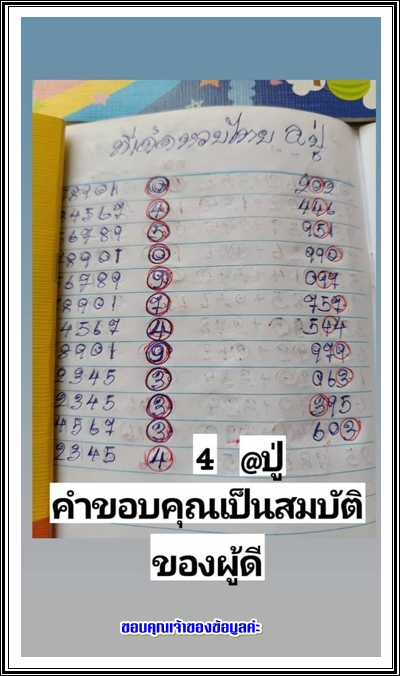 ทีเด็ดหวยไทย @ปู่
8901 0 909
4567 4 446
6789 5 951
8901 0 990
6789 9 097
8901 7 757
4567 4 544
8901 9 979
2345 3 063
2345 3 395
4567 3 603
2345 4
4 @ปู่
คำขอบคุณเป็นสมบัติ
ของผู้ดี
ขอบคุณเจ้าของข้อมูลค่ะ